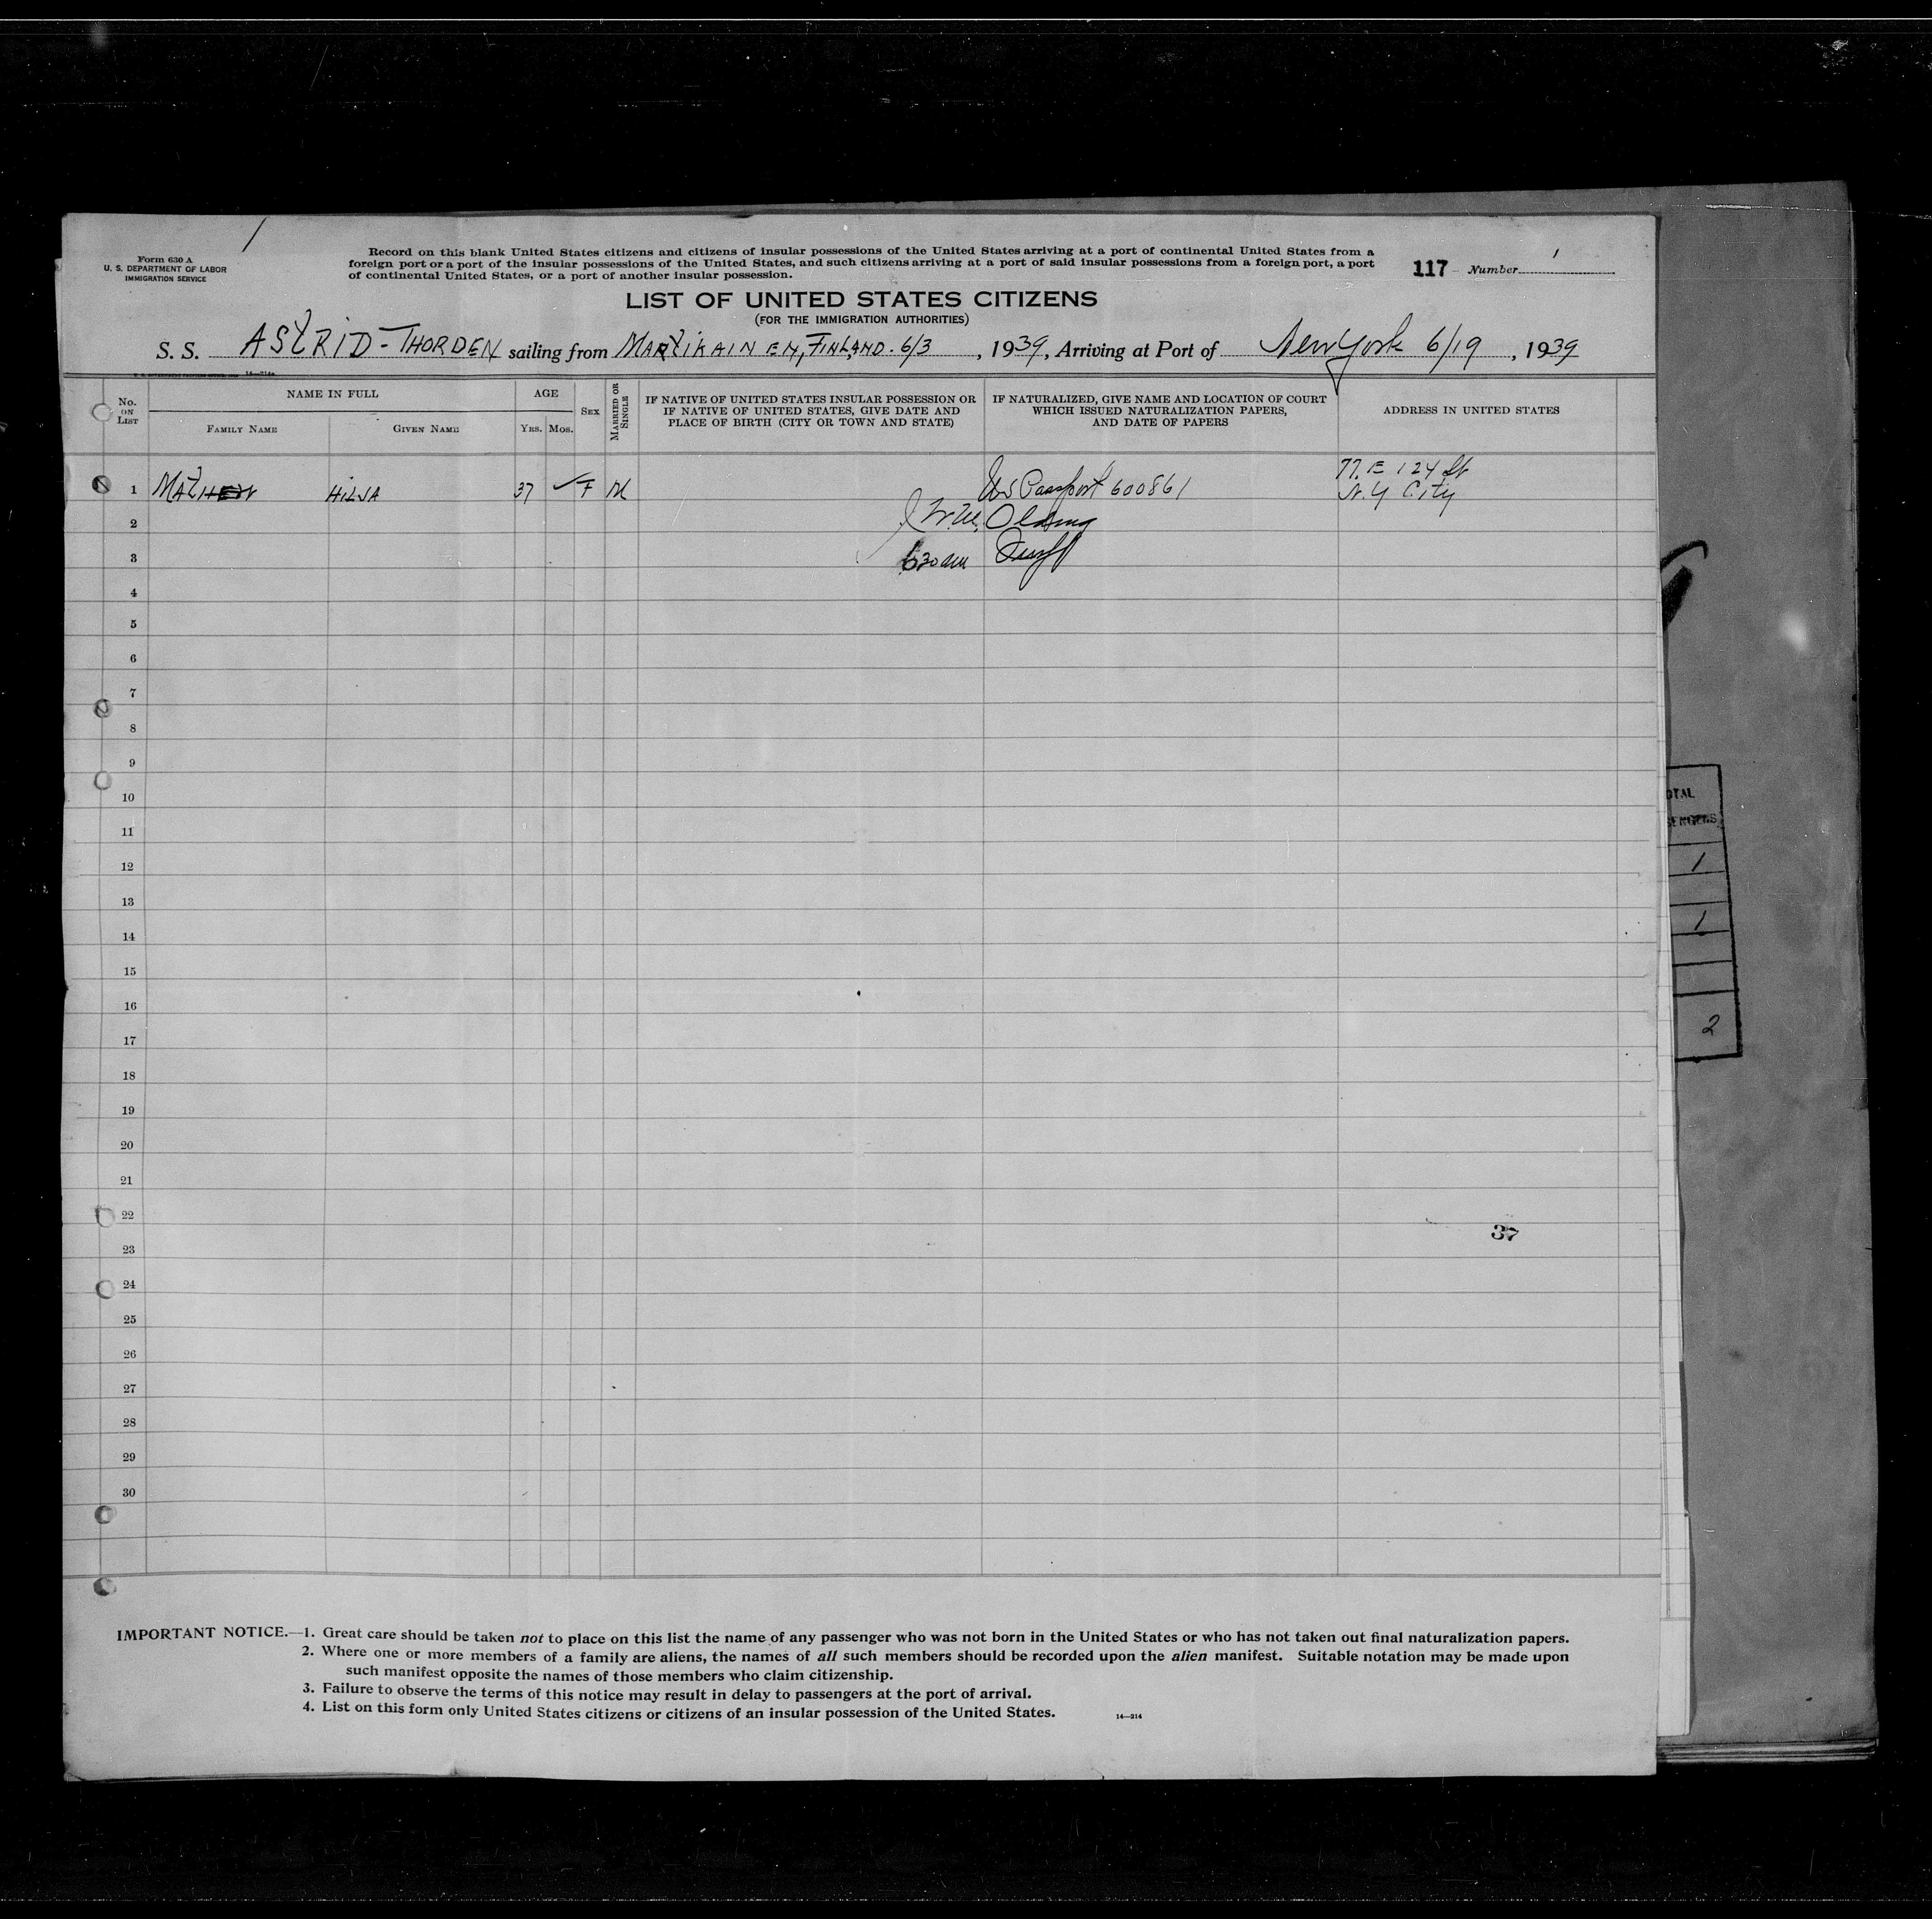 1
Form 630 A
U. S. DEPARTMENT OF LABOR
IMMIGRATION SERVICE
Record on this blank United States citizens and citizens of insular possessions of the United States arriving at a port of continental United States from a
foreign port or a port of the insular possessions of the United States, and such citizens arriving at a port of said insular possessions from a foreign port, a port
of continental United States, or a port of another insular possession.
117 Number 1
LIST OF UNITED STATES CITIZENS
(FOR THE IMMIGRATION AUTHORITIES)
S. S. ASTRID-THORDEN sailing from MARTIKAINEN, FINLAND. 6/3, 1939, Arriving at Port of New York 6/19, 1939
No. ON LIST
NAME IN FULL
FAMILY NAME
GIVEN NAME
AGE
YRS. MOS.
SEX
MARRIED OR SINGLE
IF NATIVE OF UNITED STATES INSULAR POSSESSION OR
IF NATIVE OF UNITED STATES, GIVE DATE AND
PLACE OF BIRTH (CITY OR TOWN AND STATE)
IF NATURALIZED, GIVE NAME AND LOCATION OF COURT
WHICH ISSUED NATURALIZATION PAPERS,
AND DATE OF PAPERS
ADDRESS IN UNITED STATES
77. E 124 St
1 HILJA 37 F M US Passport 600861 N.Y City
2
3 630 am
4
5
6
7
8
9
10
11
12
13
14
15
16
17
18
19
20
21
22
37
23
24
25
26
27
28
29
30
OTAL
SENGERS
1
1
2
IMPORTANT NOTICE.—1. Great care should be taken not to place on this list the name of any passenger who was not born in the United States or who has not taken out final naturalization papers.
2. Where one or more members of a family are aliens, the names of all such members should be recorded upon the alien manifest. Suitable notation may be made upon
such manifest opposite the names of those members who claim citizenship.
3. Failure to observe the terms of this notice may result in delay to passengers at the port of arrival.
4. List on this form only United States citizens or citizens of an insular possession of the United States. 14—214